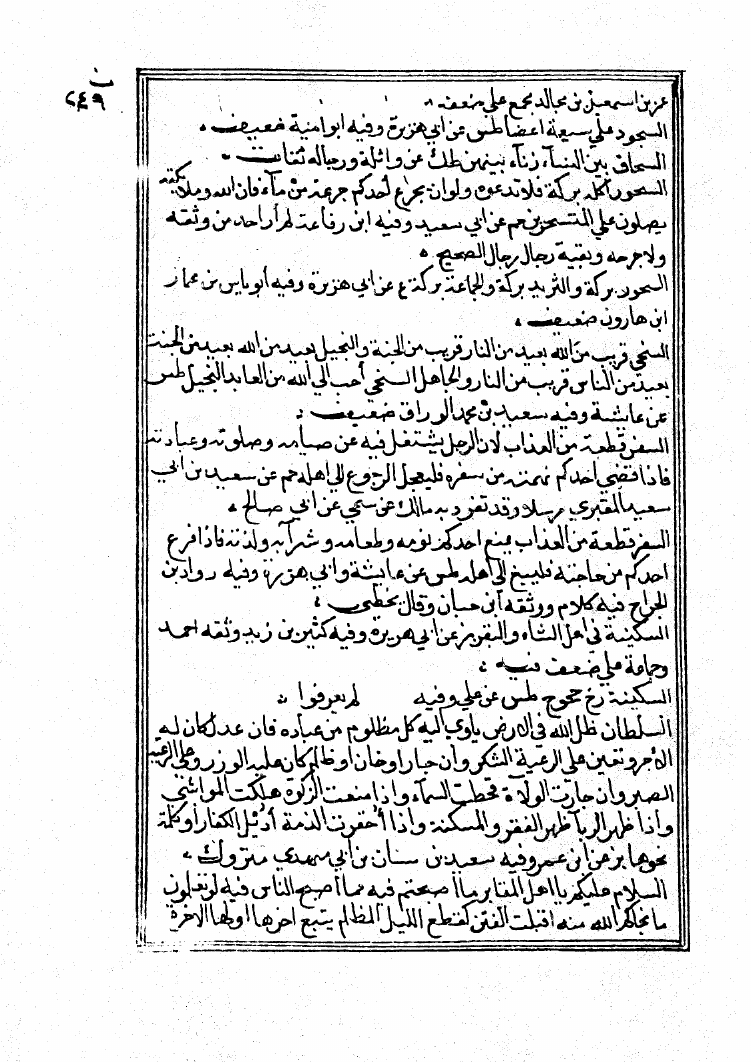 ن
٢٤٩
عن بن اسمعيل بن مجالد مجمع على ضعفه
السجود على سبعة اعضا طس عن ابي هريرة وفيه ابو امية ضعيف
السحاق بين النسآء زنآء بينهن طك عن واثلة ورجاله ثقات
السحور اكله بركة فلا تدعوه ولو ان يجرع أحدكم جرعة من مآء فان الله وملائكته
يصلون على المتسحرين حم عن ابي سعيد وفيه ابن رفاعة لم أر احد من وثقه
ولا جرحه وبقية رجال رجال الصحيح
السحور بركة والثريد بركة والجماعة بركة ع عن ابي هريرة وفيه أبو ياس بن عمار
ابن هارون ضعيف
السخي قريب من الله بعيد من النار قريب من الجنة والبخيل بعيد من الله بعيد من الجنة
بعيد من الناس قريب من النار والجاهل السخي أحب الى الله من العابد البخيل طس
عن عائشة وفيه سعيد بن محمد الوراق ضعيف
السفر قطعة من العذاب لان الرجل يشتغل فيه عن صيامه وصلوته وعبادته
فاذا قضى احدكم نهمته من سفره فليعجل الرجوع الى اهله حم عن سعيد بن ابي
سعيد المقبري مرسلا وقد تفرد به مالك عن سمي عن ابي صالح
السفر قطعة من العذاب يمنع احدكم نومه وطعامه وشرآبه ولذته فاذا فرغ
احدكم من حاجته فليسع الى اهله طس عن عايشة وابي هريرة وفيه رواد بن
الجراح فيه كلام ووثقه ابن حبان وقال يخطى
السكينة في اهل الشاء والبقر بز عن ابي هريرة وفيه كثير بن زيد وثقه احمد
وجماعة على ضعف فيه
السكينة ريح خجوج طس عن على وفيه لم يعرفوا
السلطان ظل الله في الارض ياوي اليه كل مظلوم من عباده فان عدل كان له
الأجر وتعين على الرعية الشكر وان جار او خان او ظلم كان عليه الوزر وعلى الرعية
الصبر وان جارت الولاة قحطت السمآء واذا منعت الزكوة هلكت المواشي
واذا ظهر الربا ظهر الفقر والمسكنة واذا أخفرت الذمة أديل الكفار أو كلمة
نحوها بز عن ابن عمر وفيه سعيد بن سنان بن ابي مهدي متروك
السلام عليكم يا اهل المقابر ما اصبحتم فيه مما أصبح الناس فيه لو تعلمون
ما نجاكم الله منه اقبلت الفتن كقطع الليل المظلم يتبع اخرها اولها الاخرة